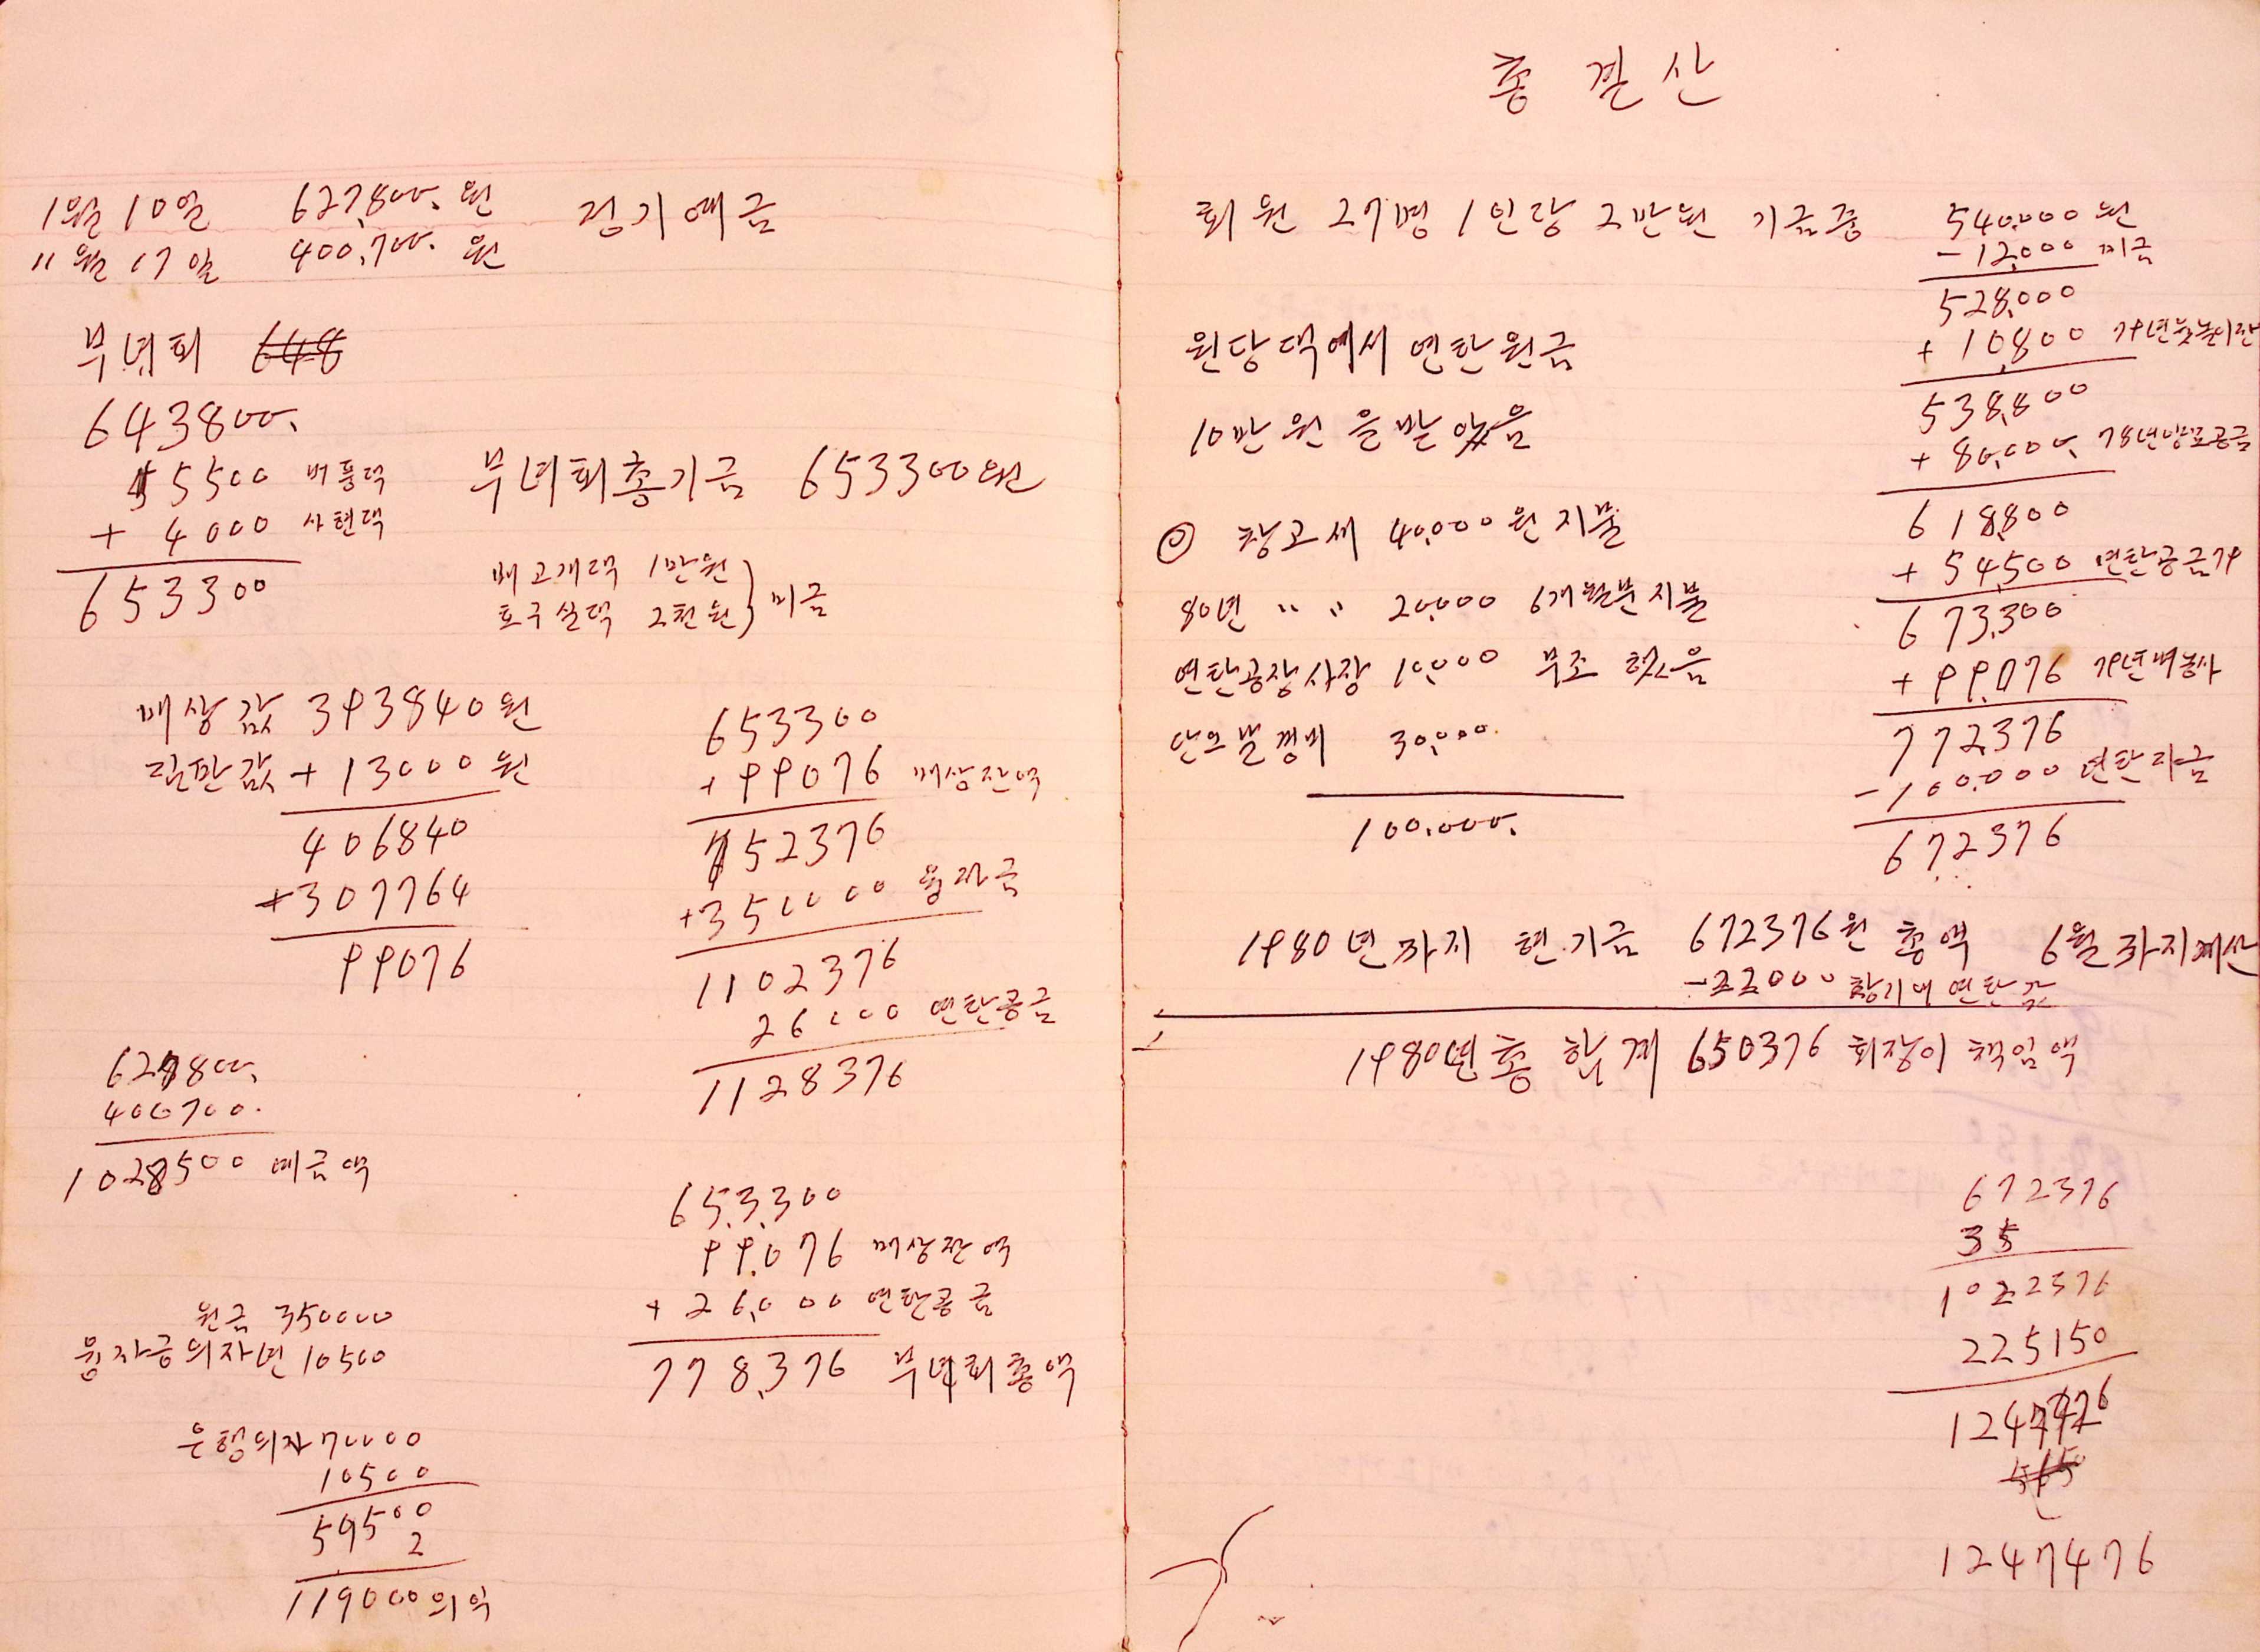 1월 10일 627,800. 원 정기예금
11월 17일 400,700. 원
부녀회 648
643800.
5500 버풍댁
+ 4000 사현댁
653300
부녀회총기금 653300원
배고개댁 1만원
호구실댁 2천원 미금
매상값 393840원
+ 13000원
406840
+307764
99076
653300
+ 99076 매상잔액
752376
+350000 융자금
1102376
26000 연탄공금
1128376
627800.
400700.
1028500 예금액
653,300
99,076 매상잔액
+ 26,000 연탄공금
778,376 부녀회총액
원금 350000
융자금의자년 10500
은행의자 70000
10500
59500
2
119000 의익
총 결 산
회원 27명 1인당 2만원 기금중 540,000원
-12,000 미금
528,000
+ 10,800 79년윷놀이잔
538,800
+ 80,000. 78년양묘공금
618,800
+ 54,500 연탄공금79
673,300
+ 99,076 79년벼농사
772,376
-100,000 연탄자금
672376
원당댁에서 연탄원금
10만원을 받았음
◎ 창고세 40,000원 지불
80년 〃 〃 20,000 6개월분 지불
연탄공장사장 10,000 부조 했음
단으발 경비 30,000.
100,000.
1980년까지 현기금 672376원 총액 6월까지계산
-22000 황기에 연탄값
1980년총합계 650376 회장이 책임액
672376
35
1022376
225150
1247426
1247476